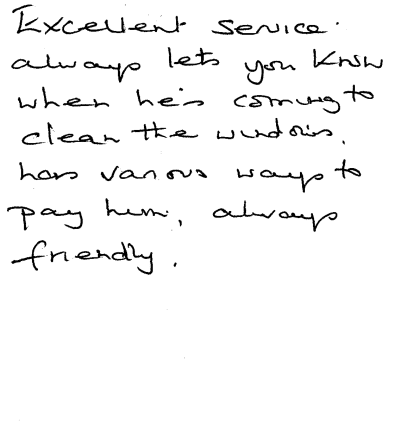 Excellent service.
always lets you know
when he's coming to
clean the windows.
has various ways to
pay him, always
friendly.